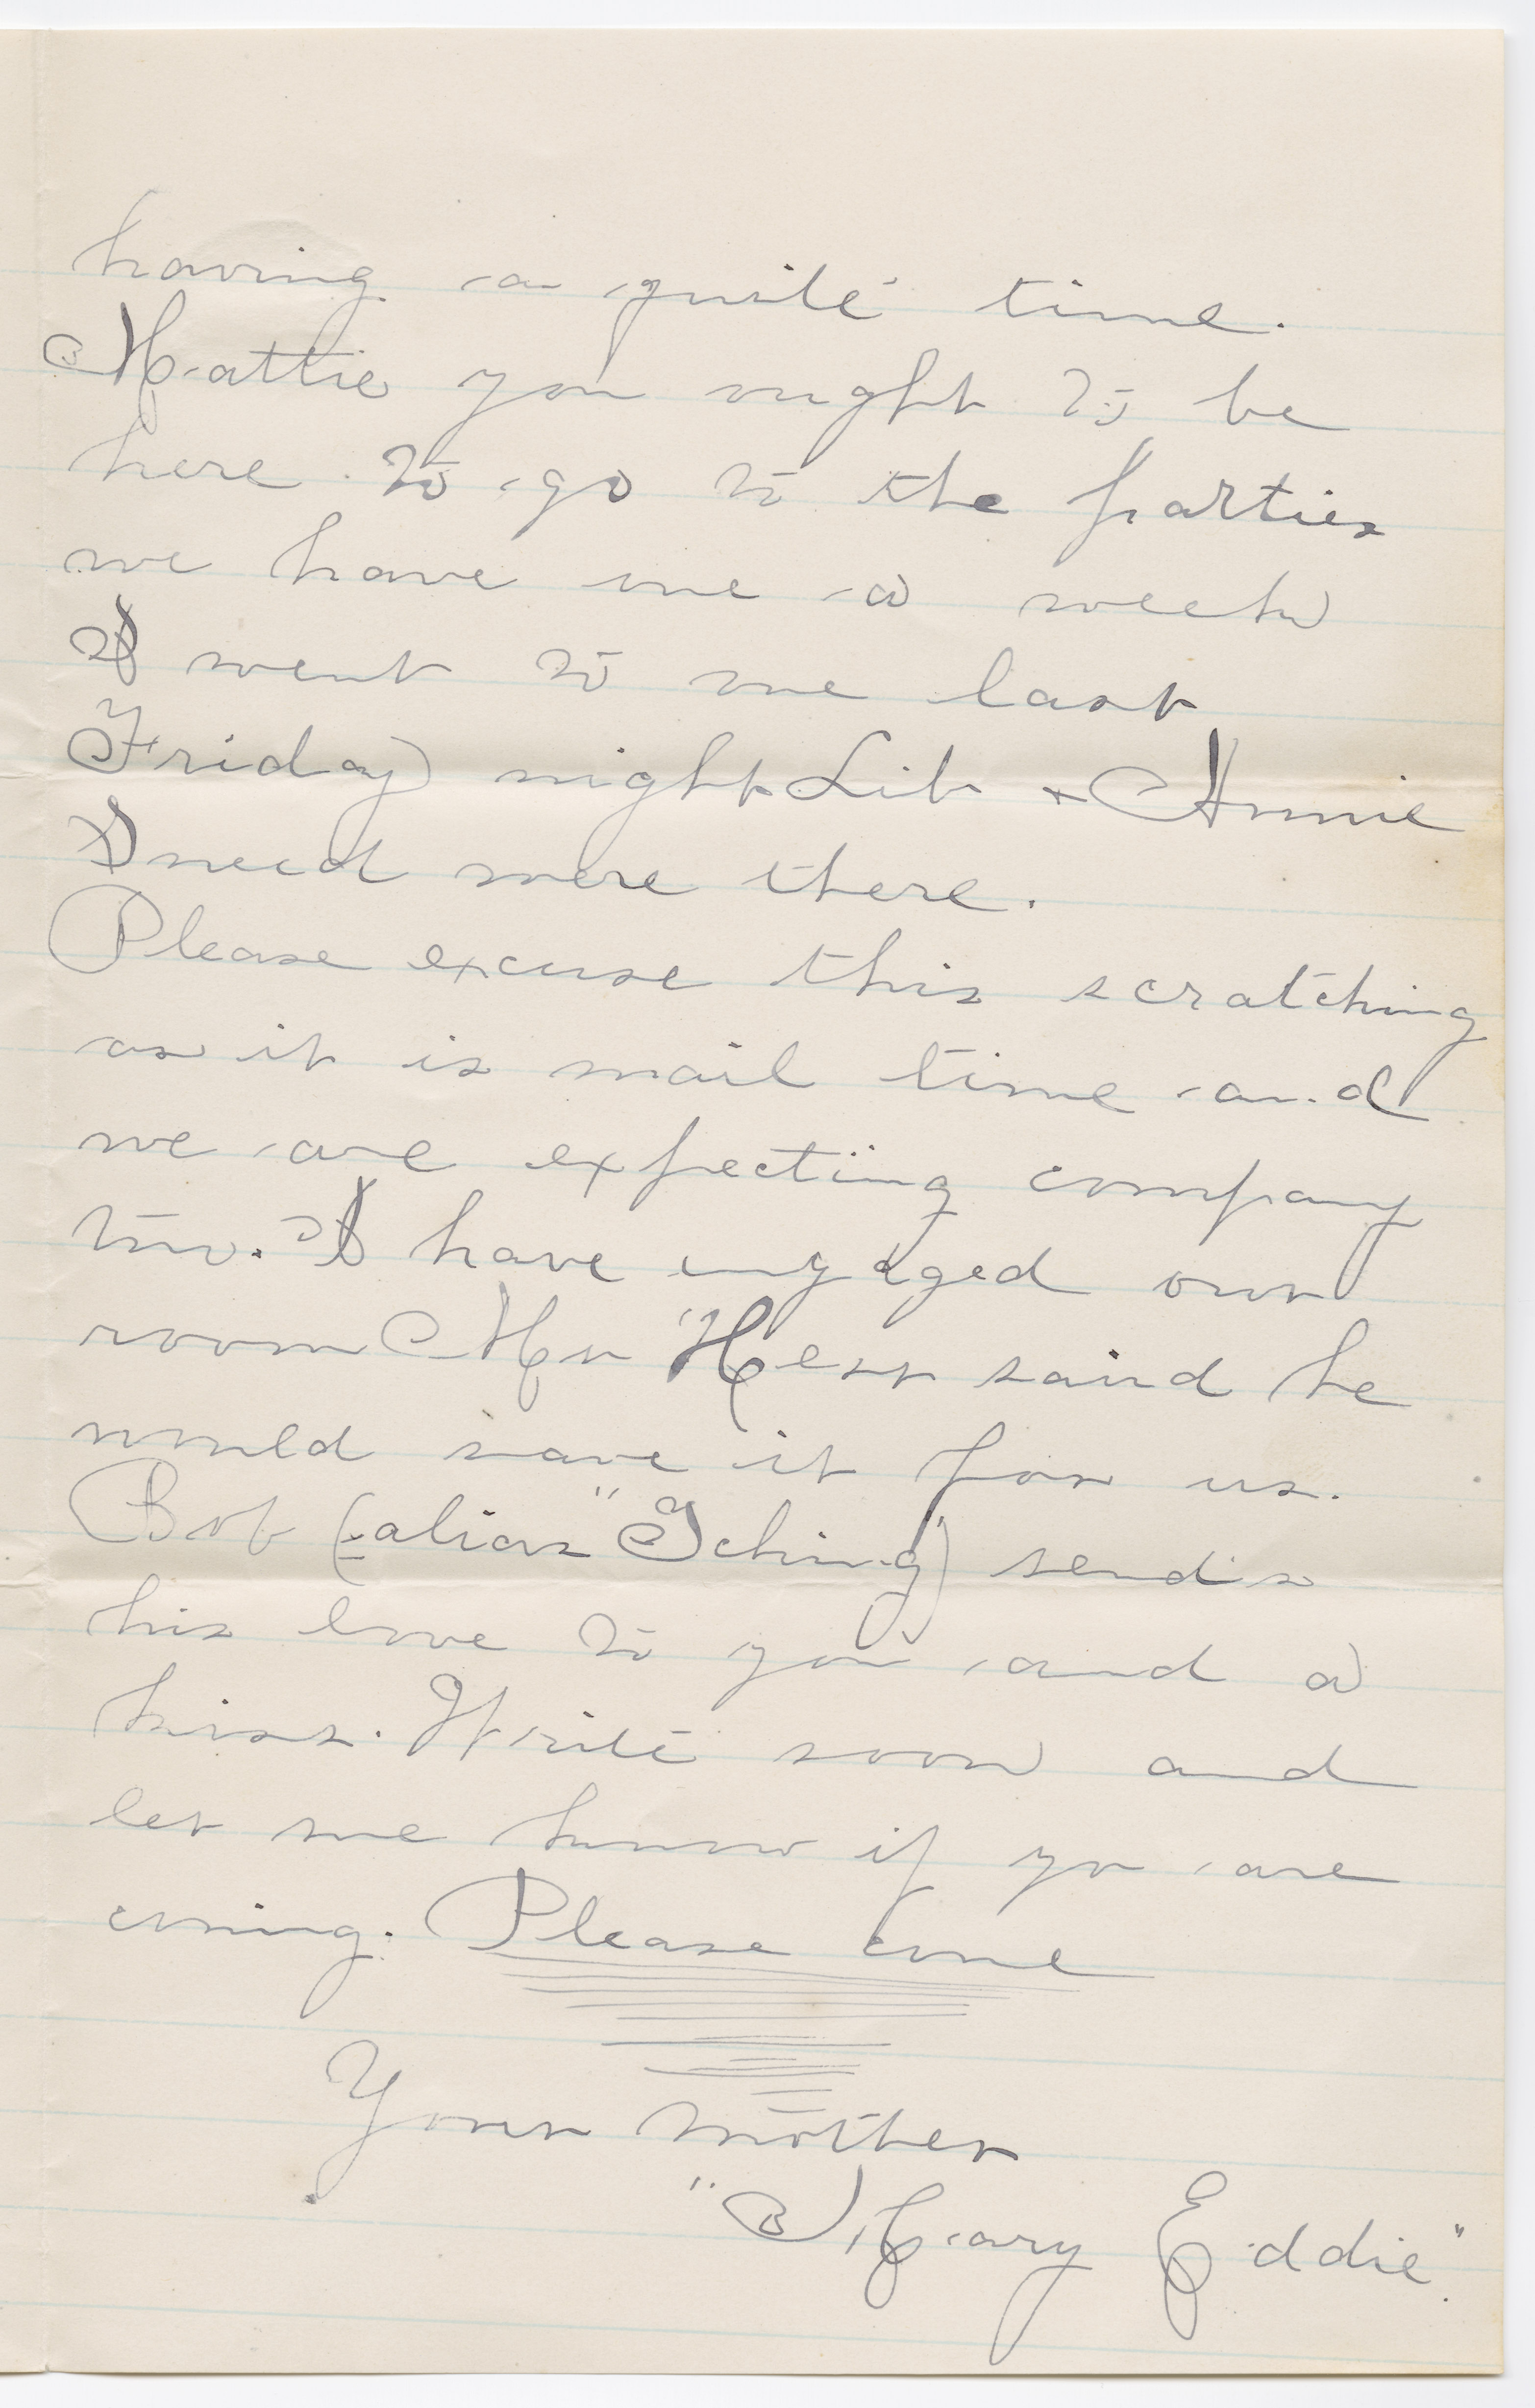 having a quite time.
Mattie you ought to be
here to go to the parties
we have one a week
I went to one last
Friday night Lib + Annie
Sneed were there.
Please excuse this scratching
as it is mail time and
we are expecting company
too. I have engaged our
room Mr Hess said he
would save it for us.
Bob (alias "Iching") sends
his love to you and a
kiss. Write soon and
let me know if yo are
coming. Please come
Your mother
"Mary Eddie".